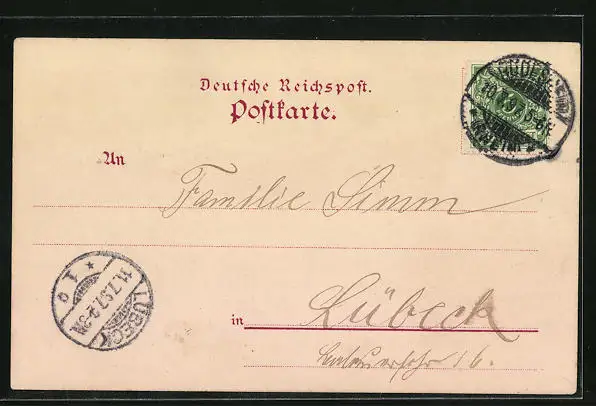 Deutsche Reichspost.
Postkarte.
An
Familie Simm
in Lübeck
16.
LÜBECK
11.7.97. 2-3N.
* 1 o